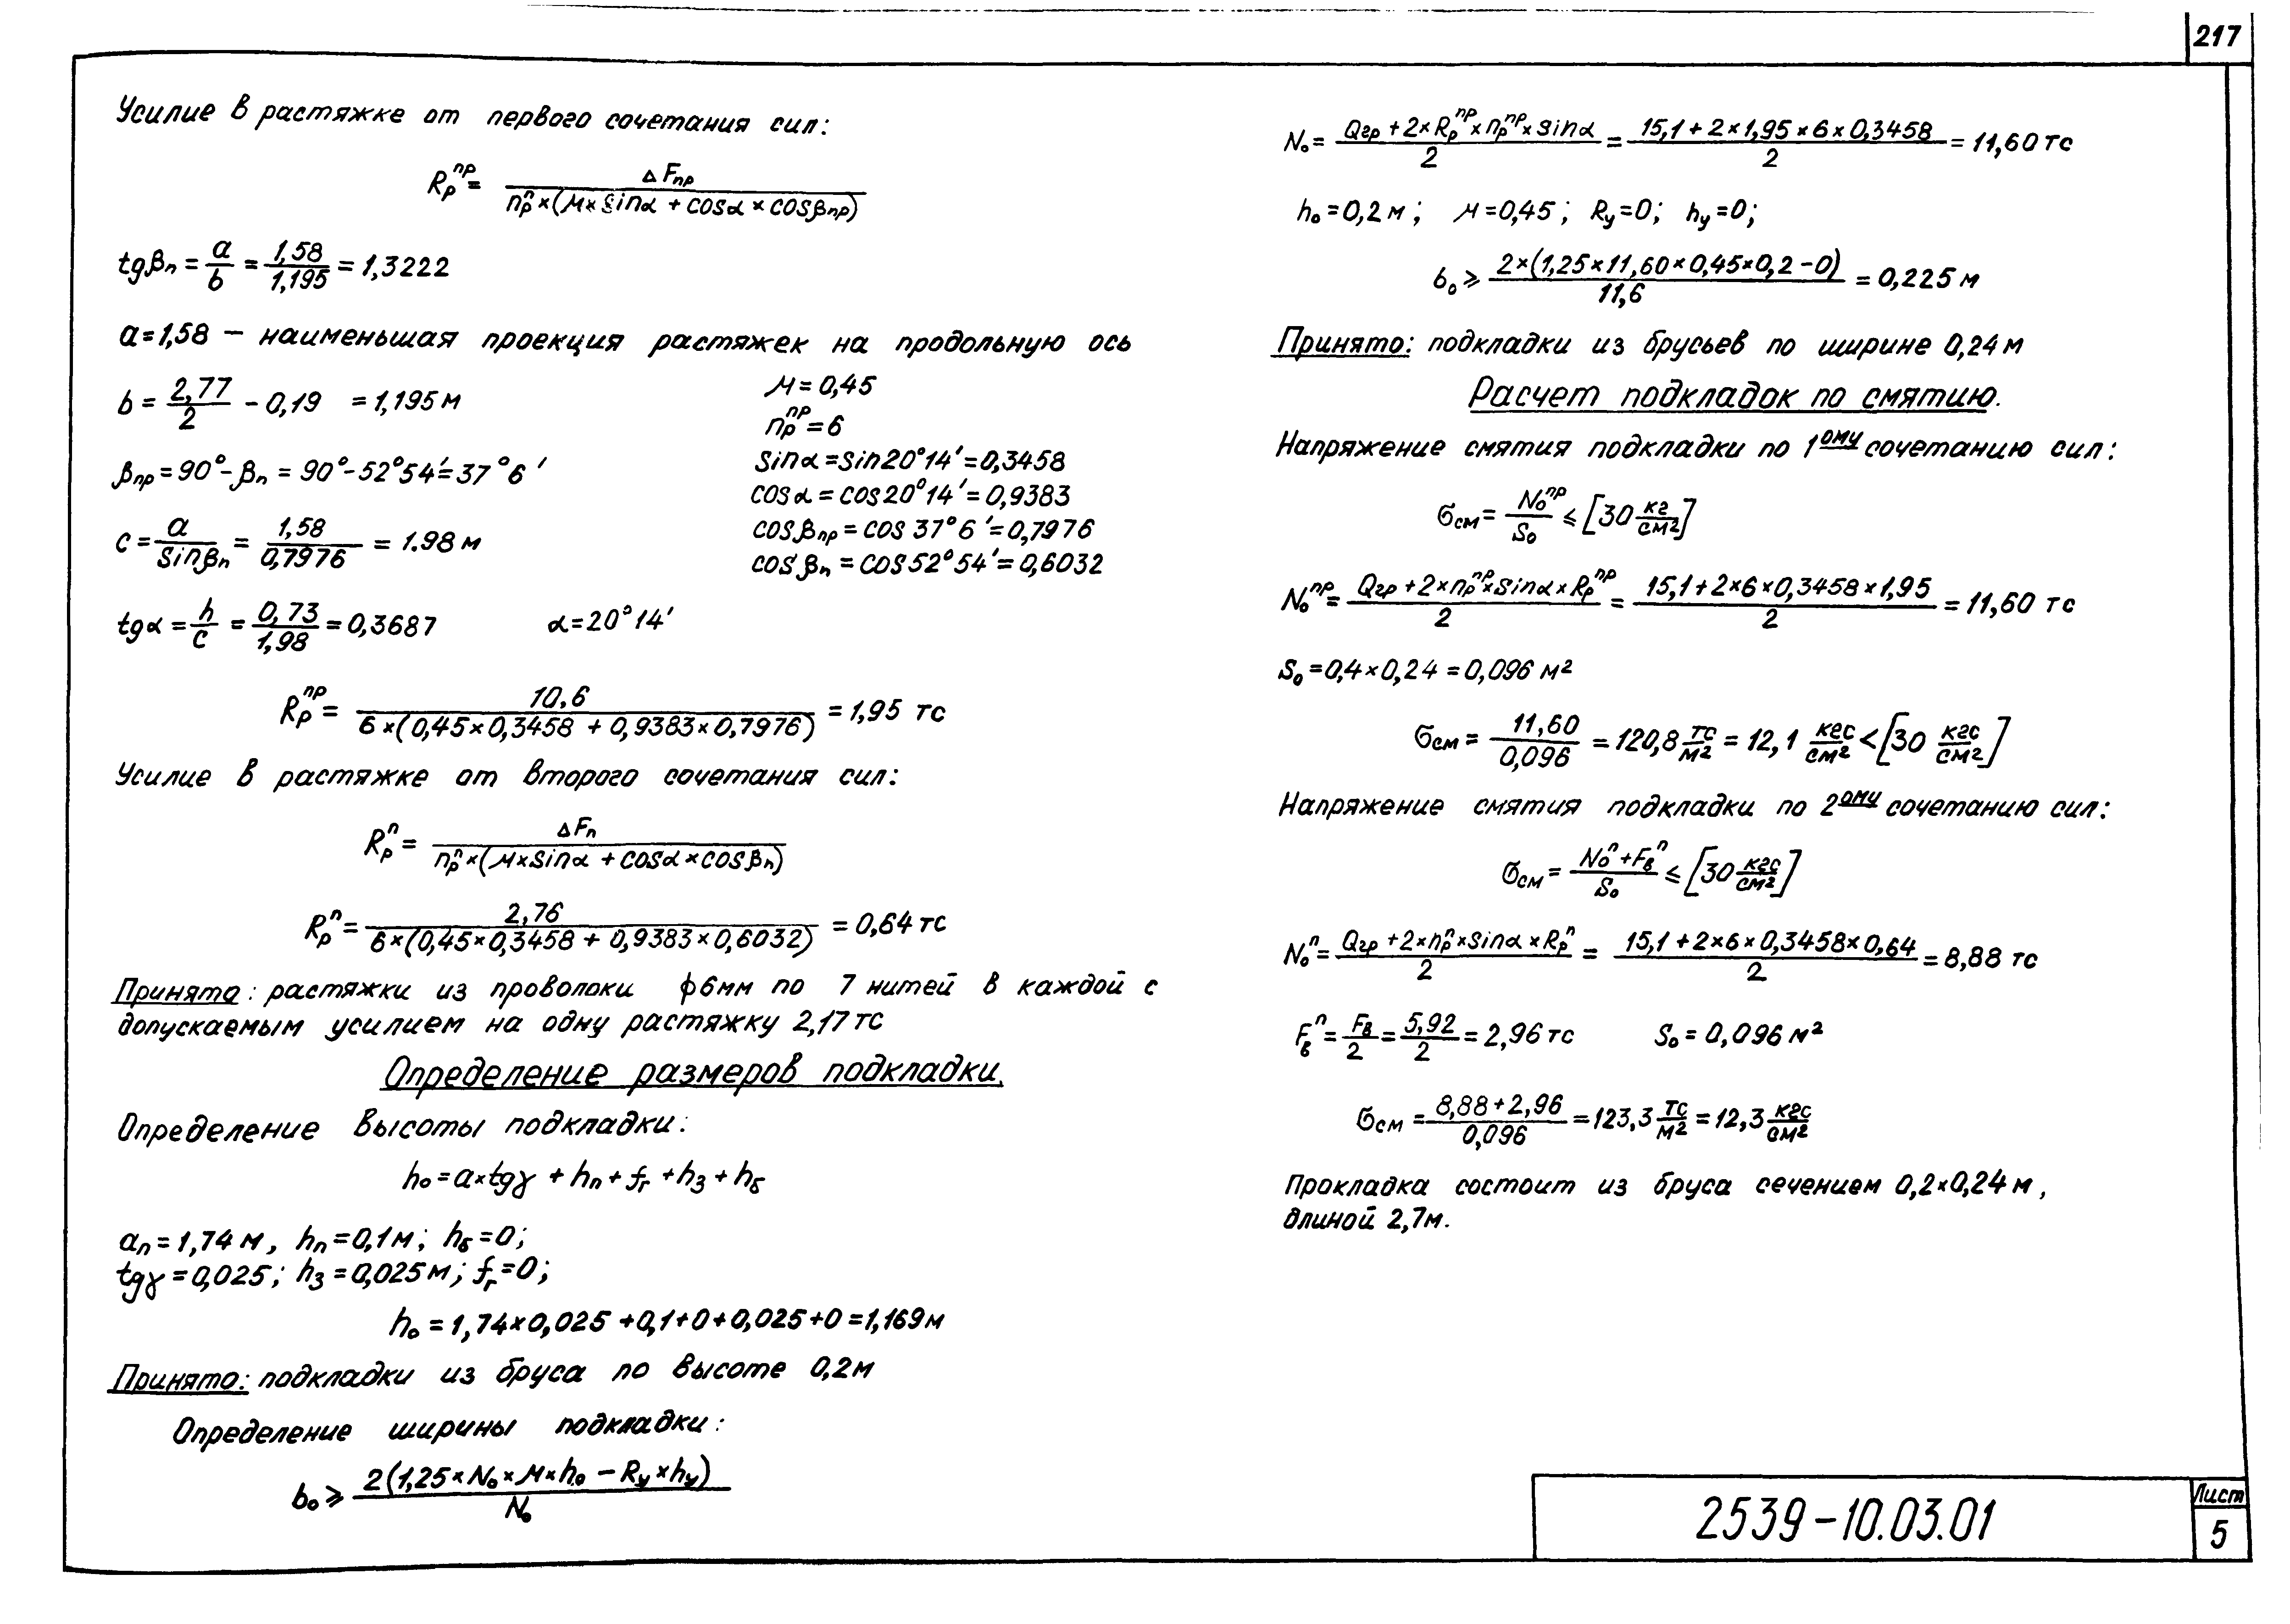 217
Усилие в растяжке от первого сочетания сил:
Rр^пр = ΔFпр / (nр^п×(μ×sinα + cosα×cosβпр))
tgβп = a/b = 1,58/1,195 = 1,3222
a=1,58 – наименьшая проекция растяжек на продольную ось
b = 2,77/2 - 0,19 = 1,195 м
βпр = 90° - βп = 90° - 52°54′ = 37°6′
c = a/sinβп = 1,58/0,7976 = 1.98 м
μ = 0,45
nр^пр = 6
sinα = sin20°14′ = 0,3458
cosα = cos20°14′ = 0,9383
cosβпр = cos 37°6′ = 0,7976
cosβп = cos52°54′ = 0,6032
tgα = h/c = 0,73/1,98 = 0,3687 α = 20°14′
Rр^пр = 10,6 / (6×(0,45×0,3458 + 0,9383×0,7976)) = 1,95 тс
Усилие в растяжке от второго сочетания сил:
Rр^п = ΔFп / (nр^п×(μ×sinα + cosα×cosβп))
Rр^п = 2,76 / (6×(0,45×0,3458 + 0,9383×0,6032)) = 0,64 тс
Принято: растяжки из проволоки ф6мм по 7 нитей в каждой с
допускаемым усилием на одну растяжку 2,17 тс
Определение размеров подкладки.
Определение высоты подкладки:
hо = a×tgγ + hп + fг + hз + hб
aп = 1,74 м, hп = 0,1м; hб = 0;
tgγ = 0,025; hз = 0,025 м; fг = 0;
hо = 1,74×0,025 + 0,1 + 0 + 0,025 + 0 = 1,169 м
Принято: подкладки из бруса по высоте 0,2 м
Определение ширины подкладки:
bо ≥ 2(1,25×Nо×μ×hо – Rу×hу) / Nо
Nо = (Qгр + 2×Rр^пр×nр^пр×sinα)/2 = (15,1 + 2×1,95×6×0,3458)/2 = 11,60 тс
hо = 0,2 м; μ = 0,45; Rу = 0; hу = 0;
bо ≥ 2×(1,25×11,60×0,45×0,2 – 0)/11,6 = 0,225 м
Принято: подкладки из брусьев по ширине 0,24 м
Расчет подкладок по смятию.
Напряжение смятия подкладки по 1ому сочетанию сил:
σсм = Nо^пр/Sо ≤ [30 кг/см²]
Nо^пр = (Qгр + 2×nр^пр×sinα×Rр^пр)/2 = (15,1 + 2×6×0,3458×1,95)/2 = 11,60 тс
Sо = 0,4×0,24 = 0,096 м²
σсм = 11,60/0,096 = 120,8 тс/м² = 12,1 кгс/см² < [30 кгс/см²]
Напряжение смятия подкладки по 2ому сочетанию сил:
σсм = (Nо^п + Fв^п)/Sо ≤ [30 кгс/см²]
Nо^п = (Qгр + 2×nр^п×sinα×Rр^п)/2 = (15,1 + 2×6×0,3458×0,64)/2 = 8,88 тс
Fв^п = Fв/2 = 5,92/2 = 2,96 тс Sо = 0,096 м²
σсм = (8,88 + 2,96)/0,096 = 123,3 тс/м² = 12,3 кгс/см²
Прокладка состоит из бруса сечением 0,2×0,24 м,
длиной 2,7м.
2539-10.03.01
Лист
5